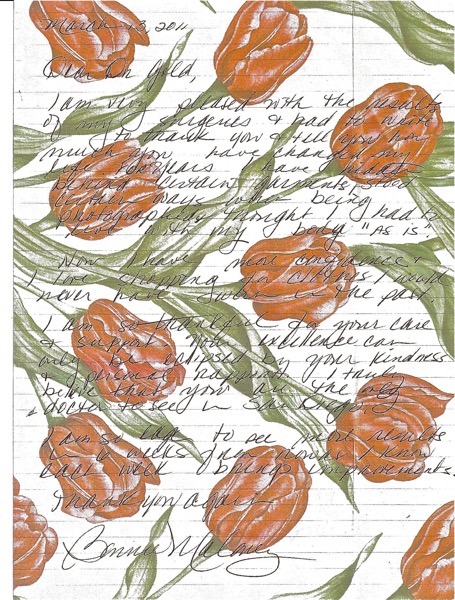 March 13, 2011
Dear Dr Gold,
I am very pleased with the results
of my surgeries & had to write
to thank you & tell you how
much you have changed my
life. For years I have hidden
behind certain garments, stood
certain ways when being
photographed & thought I had to
live with my body "AS IS".
Now I have more confidence &
I love shopping for clothes I would
never have worn in the past.
I am so thankful for your care
& support. Your excellence can
only be eclipsed by your kindness
& personal I truly
believe that you are the only
doctor to see in San Diego.
I am so to see more results
in 6 weeks I know
each week brings improvements.
Thank you again
Bonnie